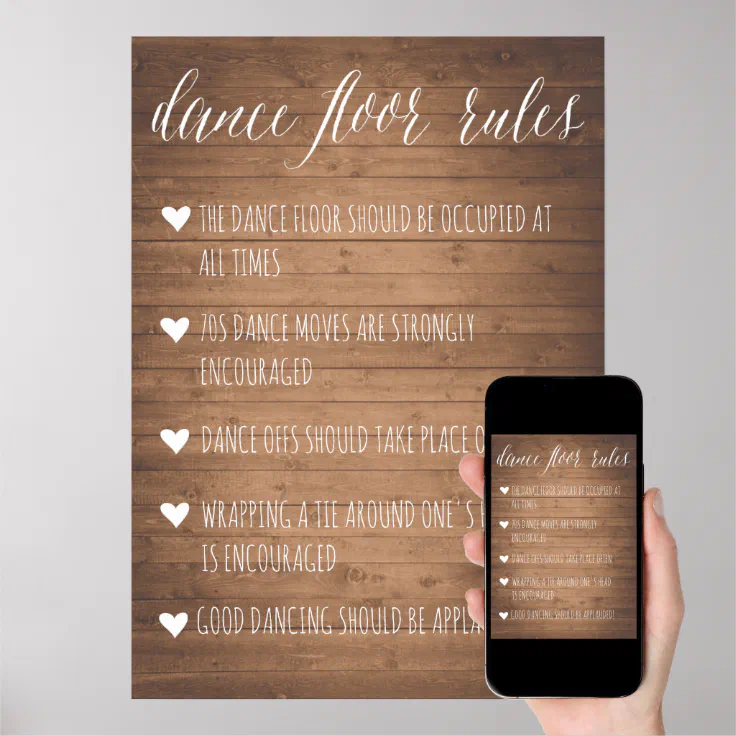 dance floor rules
THE DANCE FLOOR SHOULD BE OCCUPIED AT
ALL TIMES
70S DANCE MOVES ARE STRONGLY
ENCOURAGED
DANCE OFFS SHOULD TAKE PLACE
WRAPPING A TIE AROUND ONE'S
IS ENCOURAGED
GOOD DANCING SHOULD BE
dance floor rules
THE DANCE FLOOR SHOULD BE OCCUPIED AT
ALL TIMES
70S DANCE MOVES ARE STRONGLY
ENCOURAGED
DANCE OFFS SHOULD TAKE PLACE OFTEN
WRAPPING A TIE AROUND ONE'S HEAD
IS ENCOURAGED
GOOD DANCING SHOULD BE APPLAUDED!